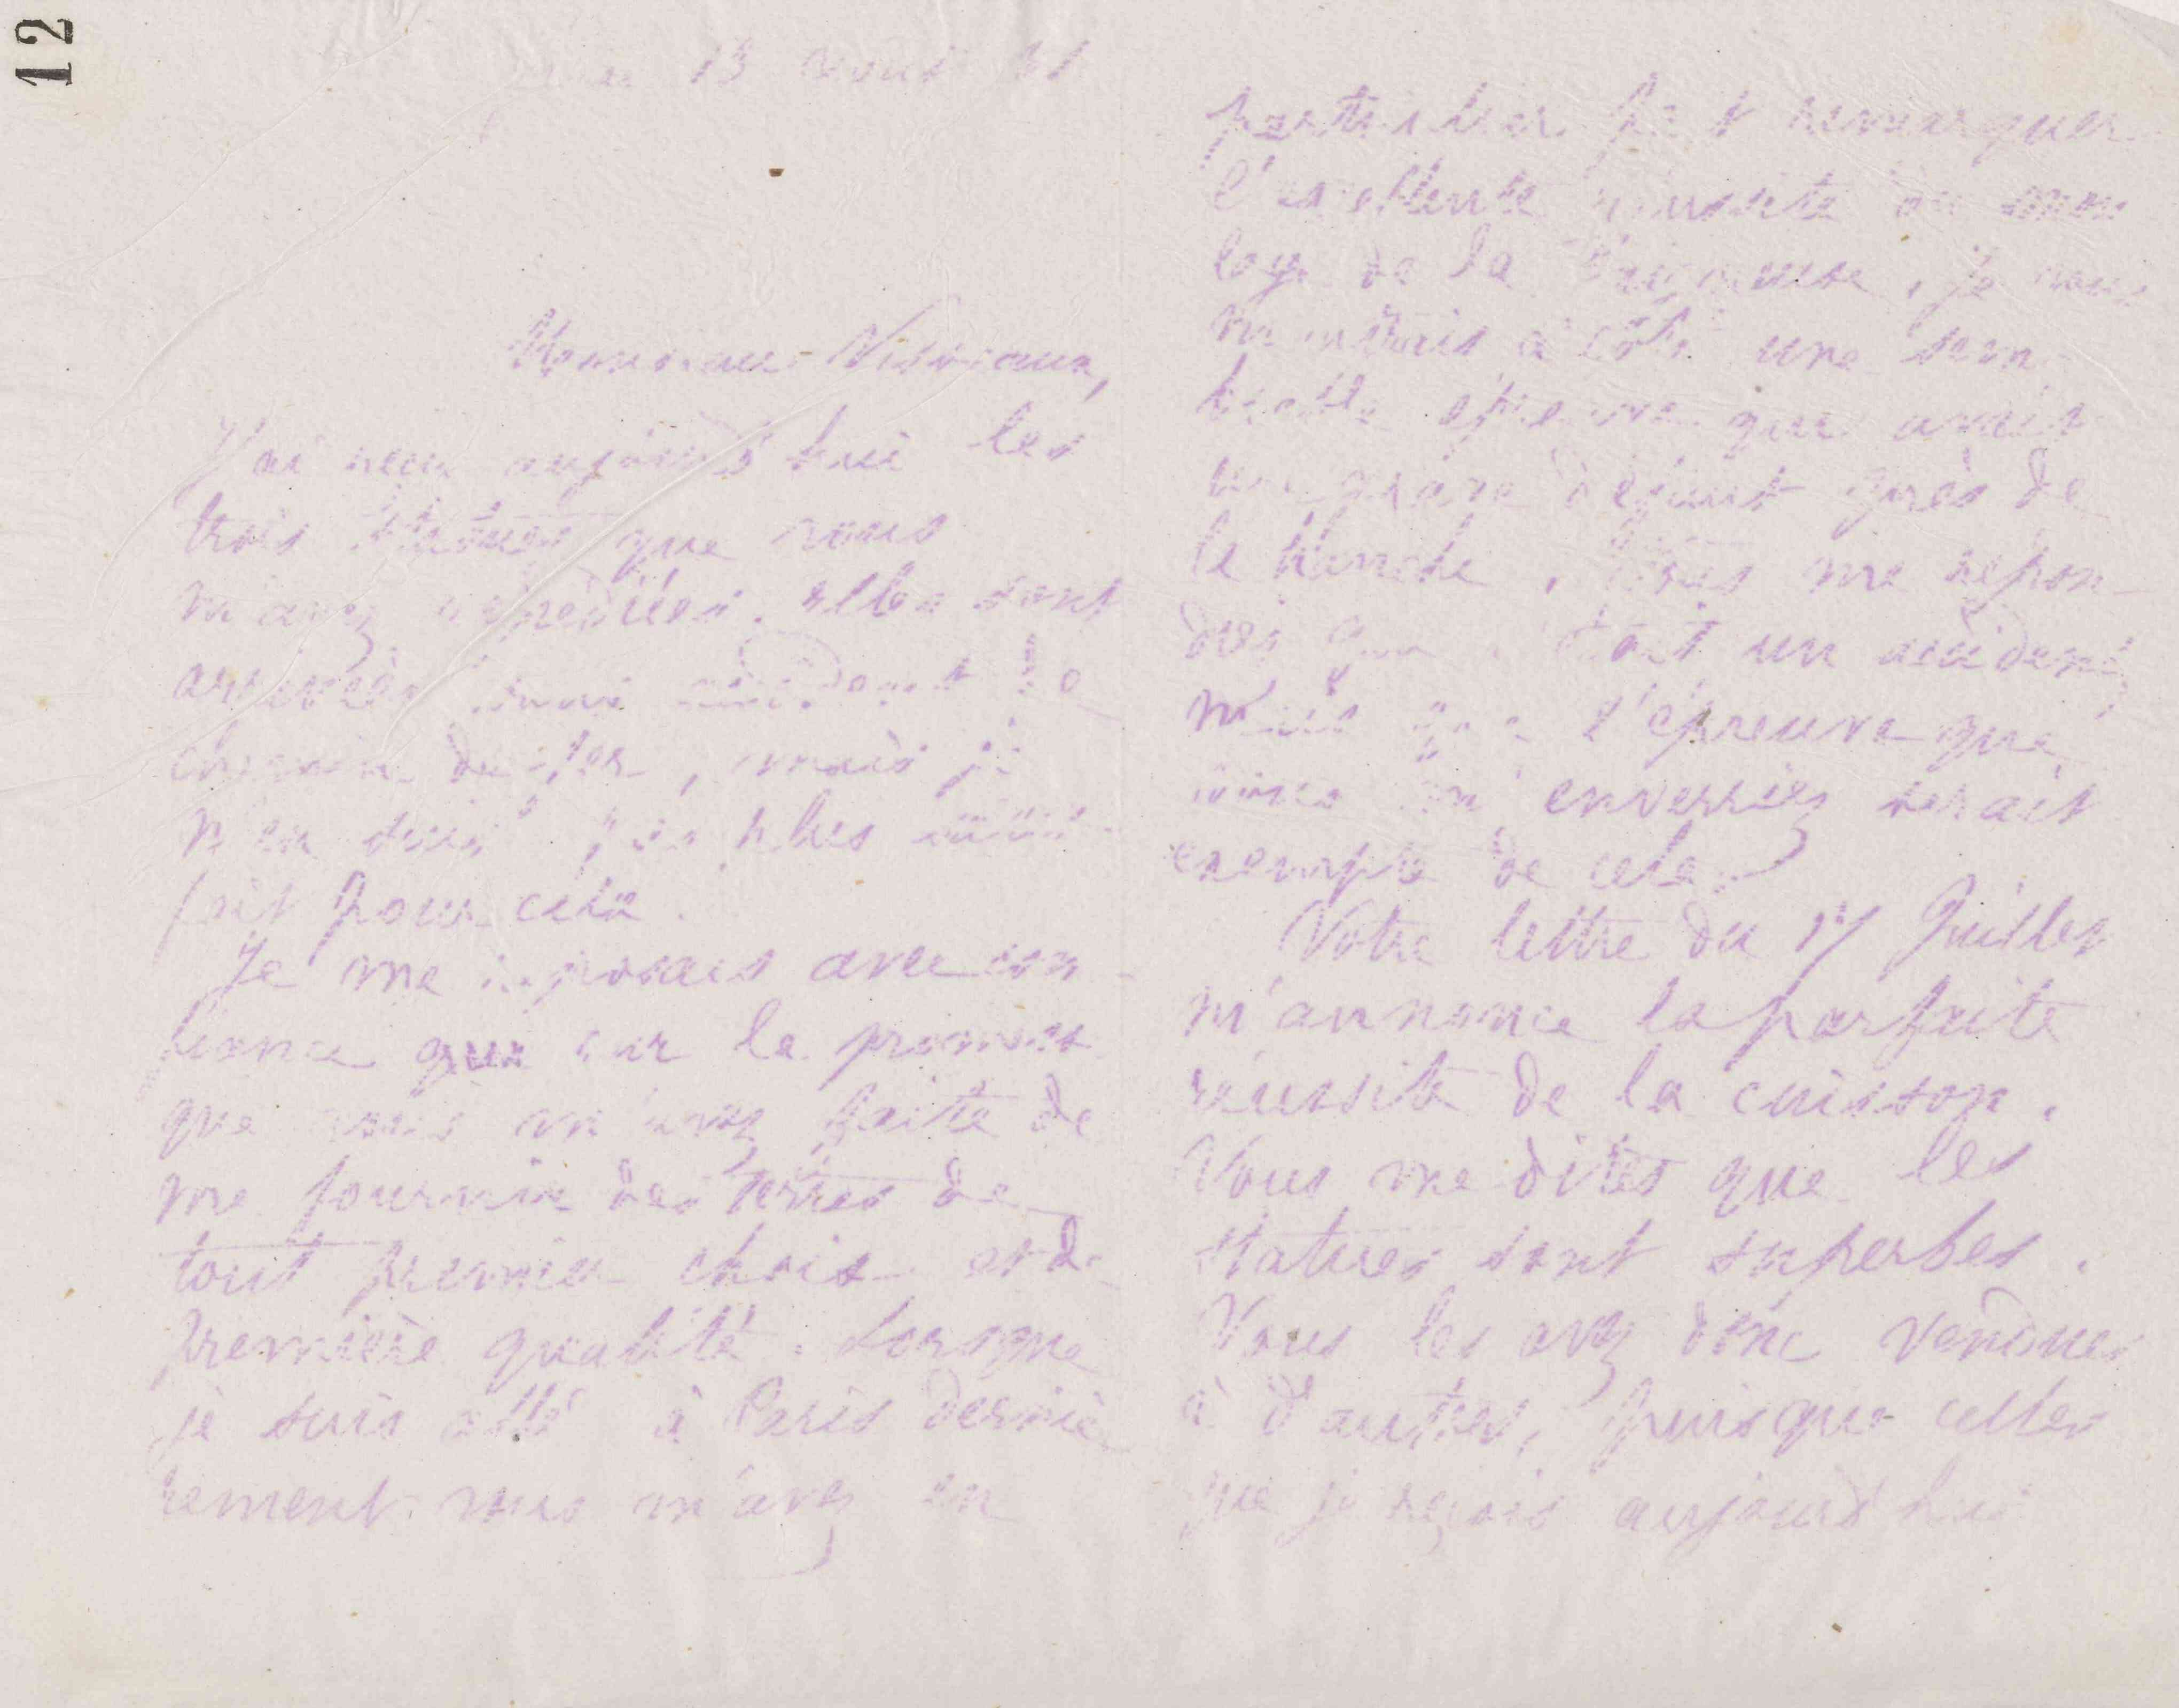 12
13 août 91
Monsieur Visseaux,
J'ai reçu aujourd'hui les
trois statues que vous
m'avez expédiées. elles sont
arrivées sans accident de
chemin de fer, mais je
n'en suis pas plus satis-
fait pour cela.
Je me reposais avec con-
fiance que sur la promesse
que vous m'avez faite de
me fournir des terres de
tout premier choix et de
première qualité. Lorsque
je suis allé à Paris derniè-
rement vous m'avez en
particulier fait remarquer
l'excellente réussite de mon
de la je vous
montrais à côté une sem-
blable épreuve qui avait
un grave défaut près de
la hanche, Vous me répon-
dies que c'était un accident,
mais que l'épreuve que
vous m'enverriez serait
exempte de cela.
Votre lettre du 17 Juillet
m'annonce la parfaite
réussite de la cuisson.
Vous me dites que les
statues sont superbes.
Vous les avez donc vendues
à d'autres, puisque celles
que je reçois aujourd'hui